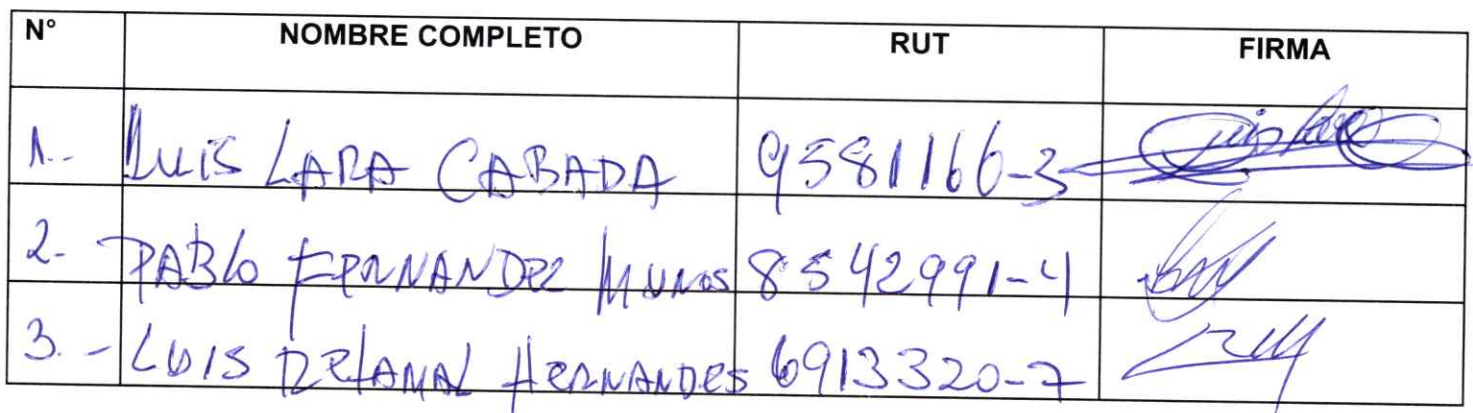 N° NOMBRE COMPLETO RUT FIRMA
1.- LUIS LARA CABADA 9581166-3 Luis Lara
2.- PABLO FERNANDEZ MUNOS 8542991-4
3.- LUIS RETAMAL HERNANDES 6913320-7